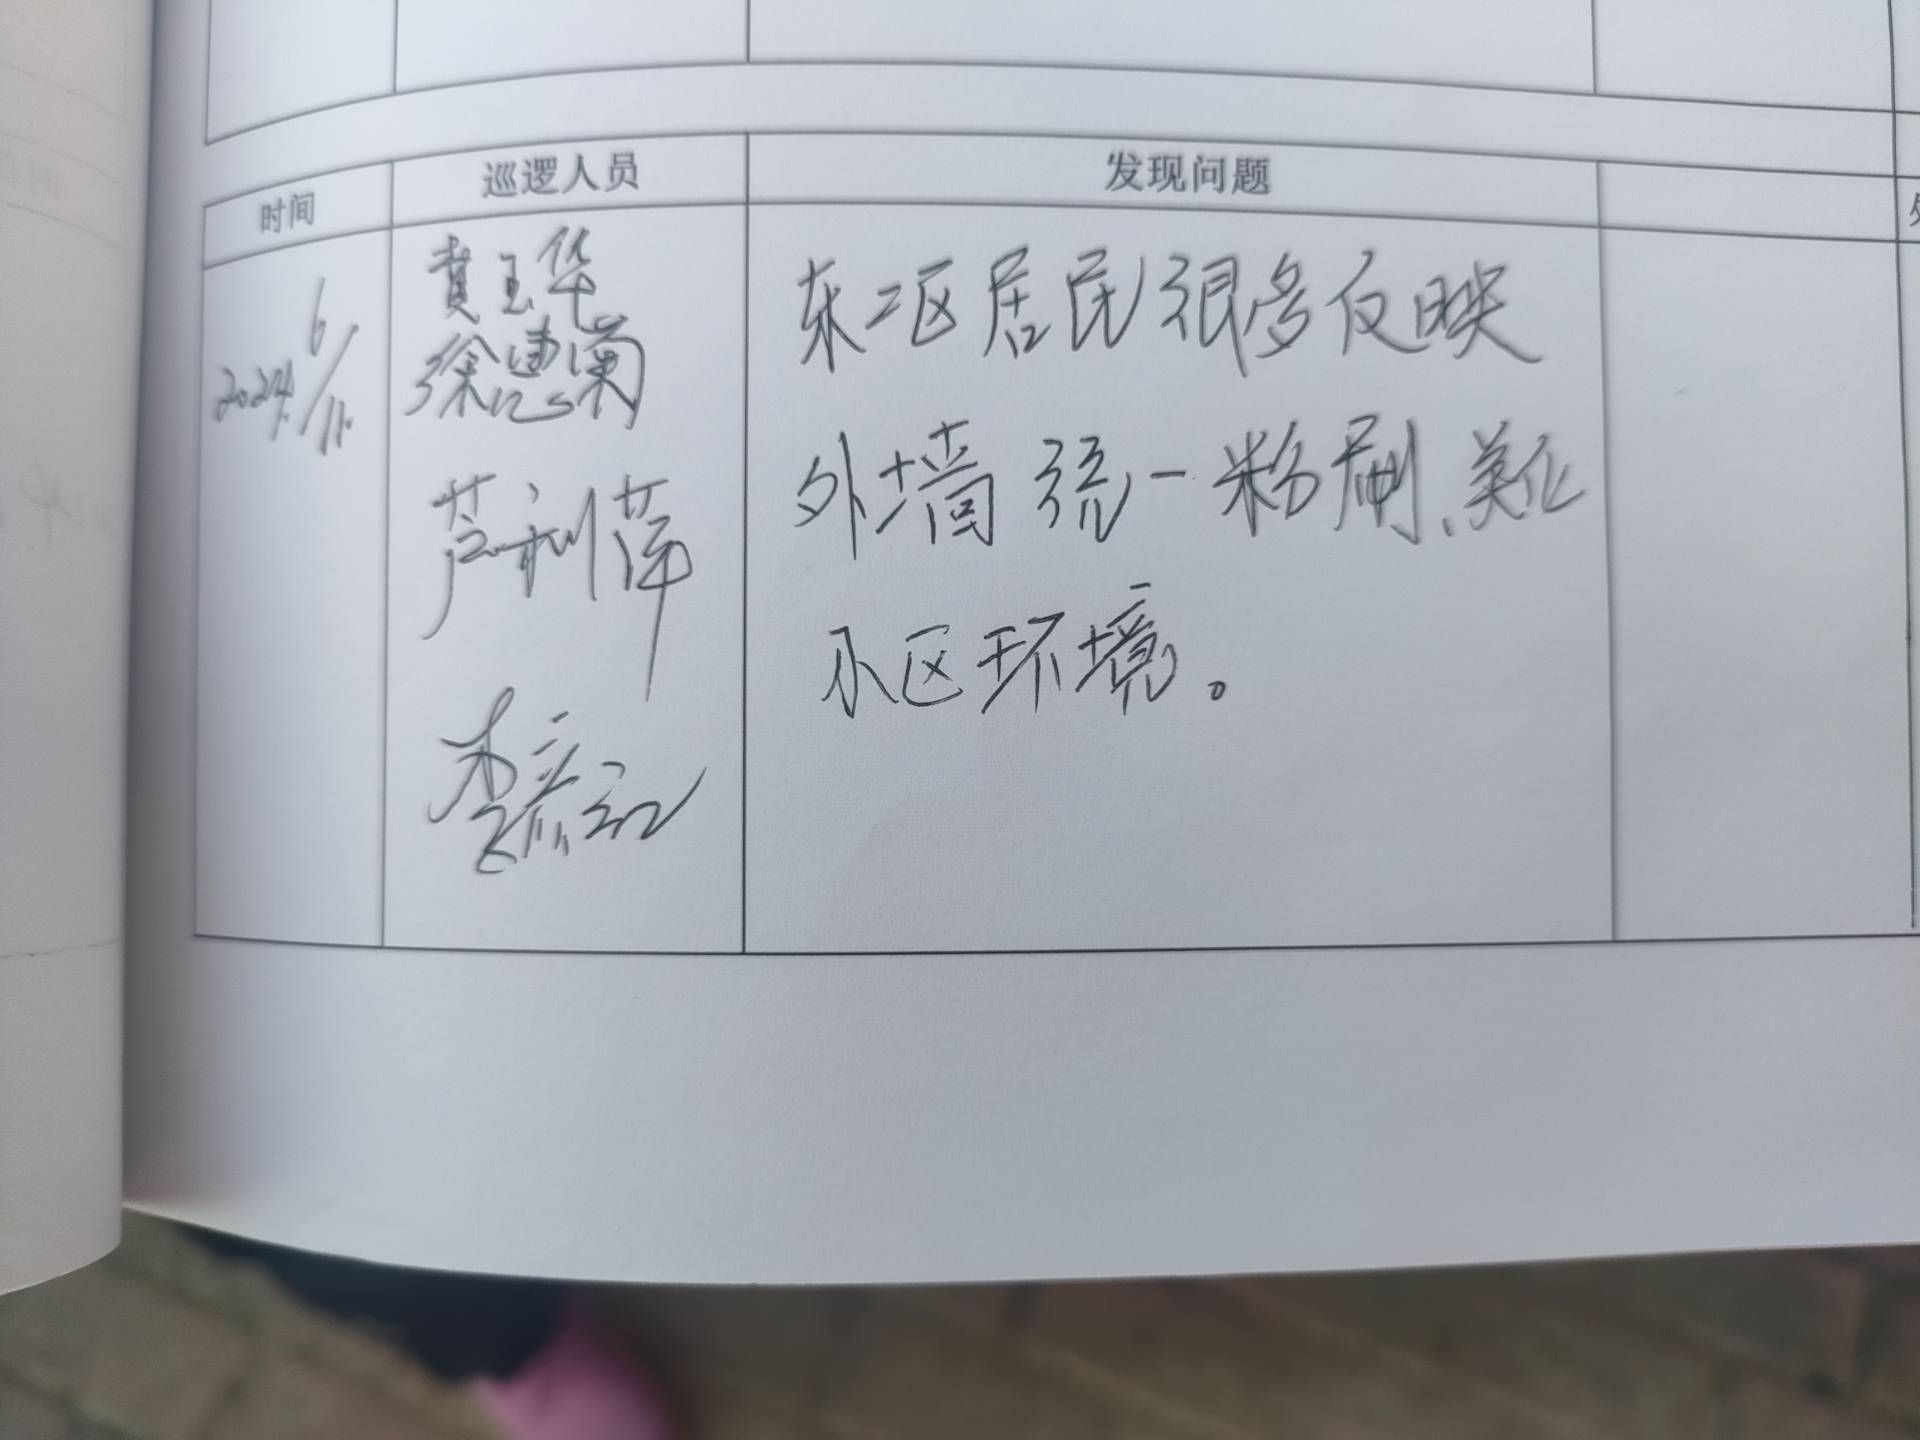 时间 巡逻人员 发现问题
2024. 6/11.
黄玉华
徐惠菊
芦利萍
李
东二区居民很多反映
外墙统一粉刷、美化
小区环境。